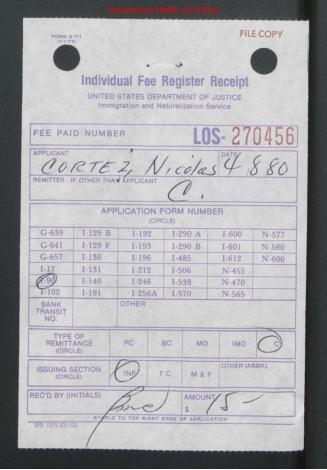 Scanned by NARA, 4/17/2023
FORM G-711
(7-1-77)
FILE COPY
Individual Fee Register Receipt
UNITED STATES DEPARTMENT OF JUSTICE
Immigration and Naturalization Service
FEE PAID NUMBER LOS- 270456
APPLICANT DATE
CORTEZ, Nicolas 4 8 80
REMITTER - IF OTHER THAN APPLICANT
C.
APPLICATION FORM NUMBER
(CIRCLE)
G-639 I-129 B I-192 I-290 A I-600 N-577
G-641 I-129 F I-193 I-290 B I-601 N-580
G-657 I-130 I-196 I-485 I-612 N-600
I-17 I-131 I-212 I-506 N-455
I-90 I-140 I-246 I-539 N-470
I-102 I-191 I-256A I-570 N-565
BANK TRANSIT NO. OTHER
TYPE OF REMITTANCE (CIRCLE) PC BC MO IMO C
ISSUING SECTION (CIRCLE) INF T C M & F OTHER (ABBR.)
REC'D BY (INITIALS) AMOUNT
$ 15-
STAPLE TO TOP RIGHT EDGE OF APPLICATION